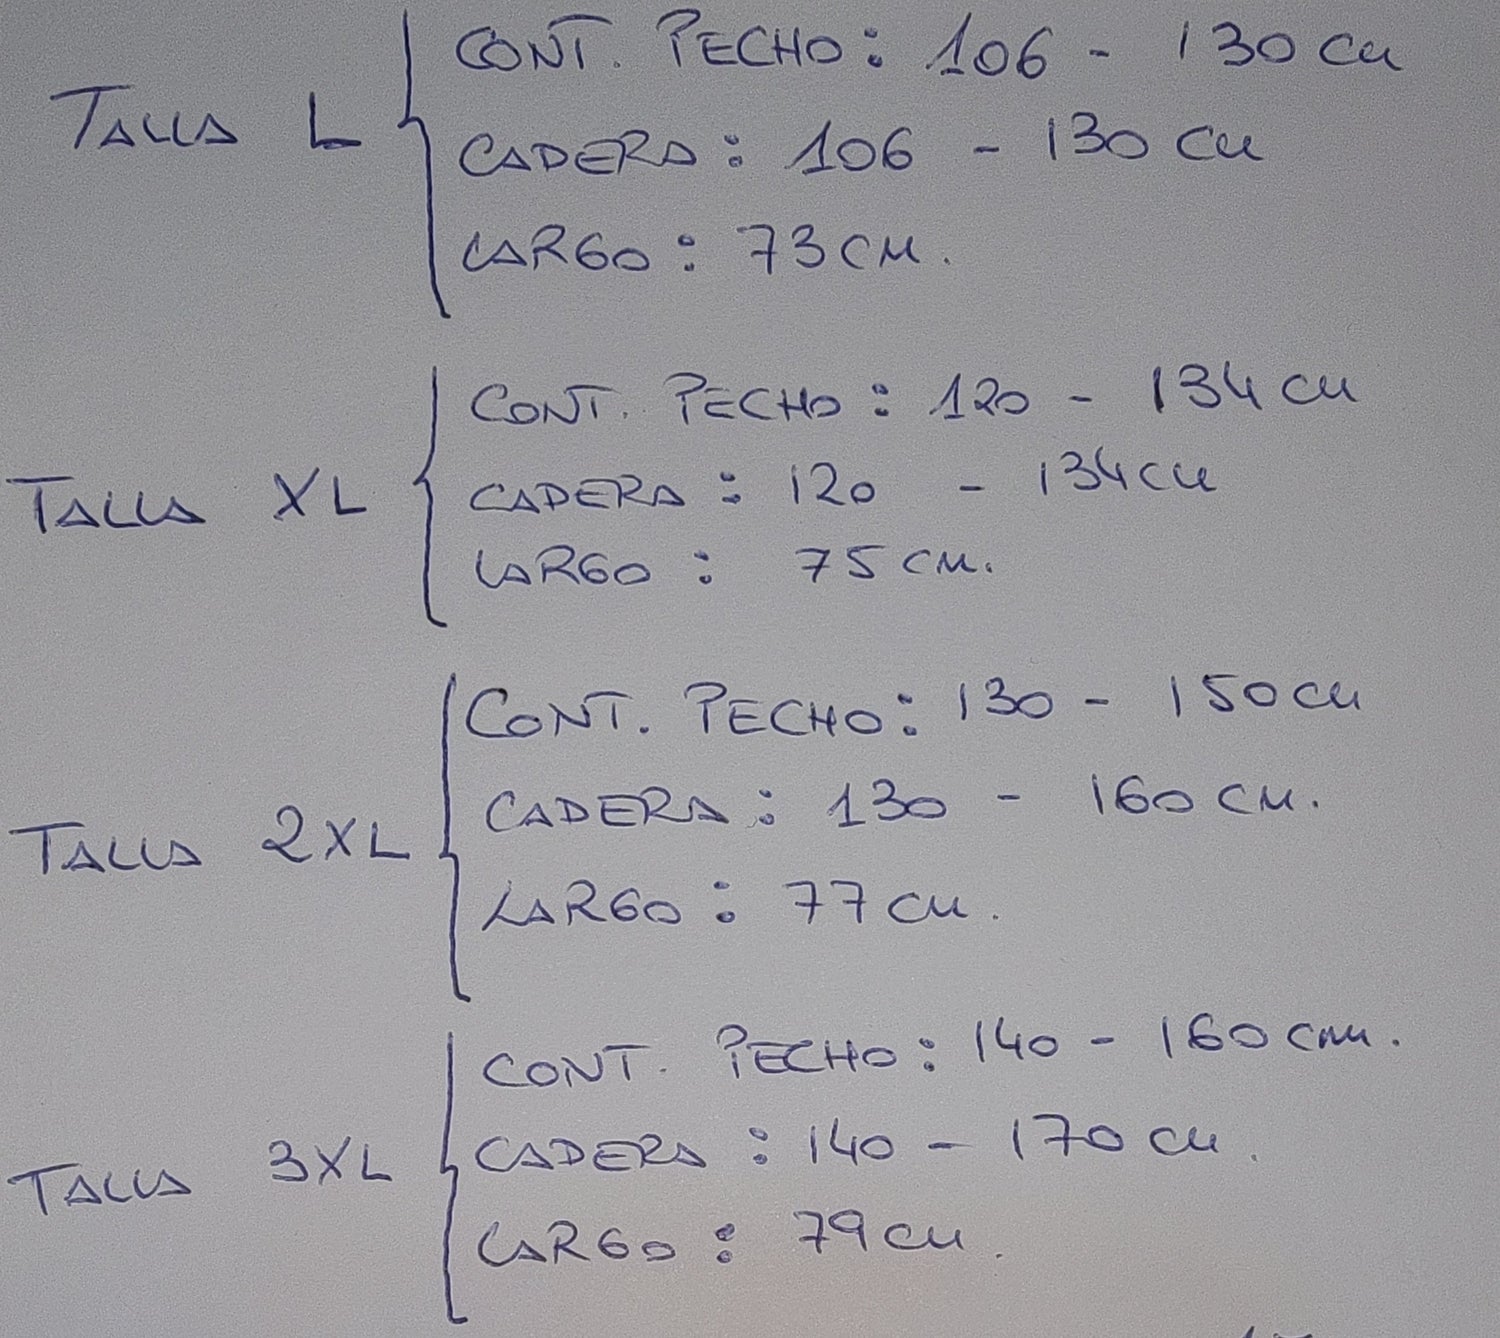 TALLA L
CONT. PECHO: 106 - 130 cm
CADERA: 106 - 130 cm
LARGO: 73 CM.
TALLA XL
CONT. PECHO: 120 - 134 cm
CADERA: 120 - 134 cm
LARGO: 75 CM.
TALLA 2XL
CONT. PECHO: 130 - 150 cm
CADERA: 130 - 160 CM.
LARGO: 77 cm.
TALLA 3XL
CONT. PECHO: 140 - 160 cm.
CADERA: 140 - 170 cm.
LARGO: 79 cm.